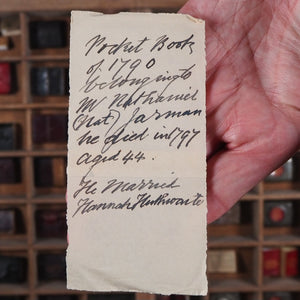 Pocket Book
of 1790
belonging to
Mr Nathaniel
(Nat) Jarman
he died in 1797
aged 44.
He Married
Hannah Huthwaite